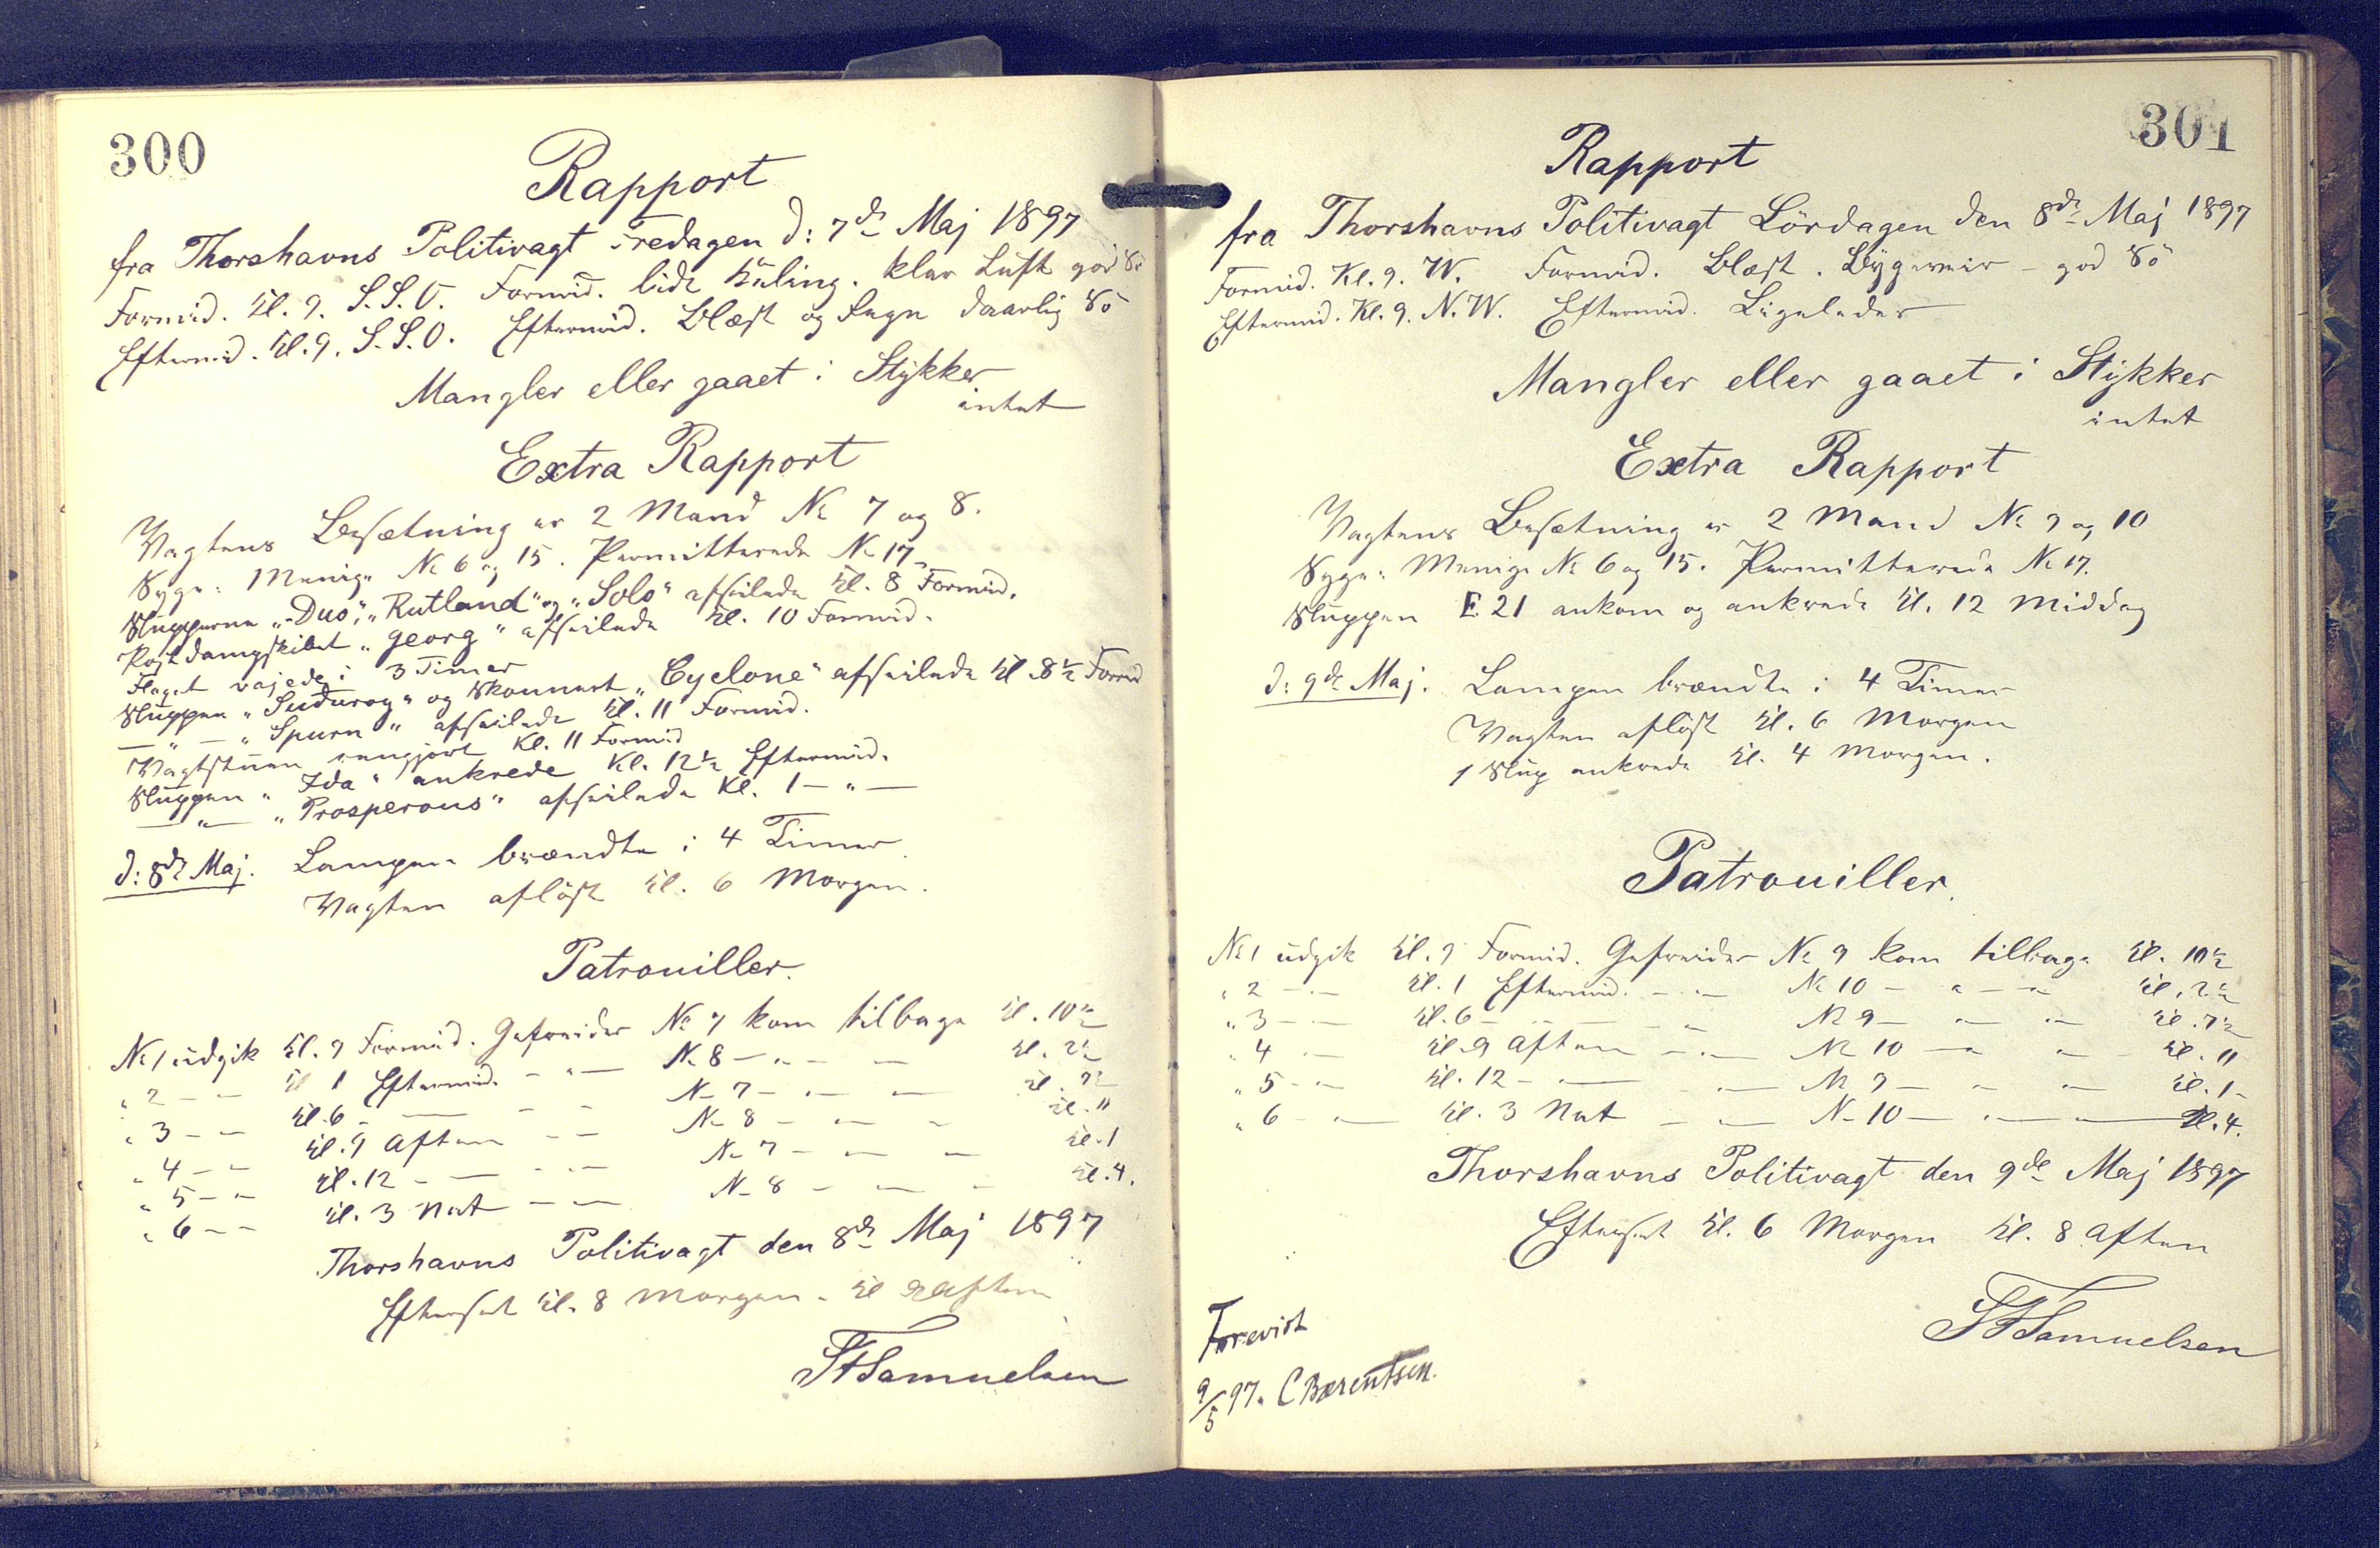 300
Rapport
fra Thorshavns Politivagt Fredagen d: 7de Maj 1897
Formid. Kl. 9. S.S.O. Formid. lidt Kuling. klar Luft god Sö
Eftermid. Kl. 9. S.S.O. Eftermid. Blæst og Regn daarlig Sö
Mangler eller gaaet i Stykker
intet
Extra Rapport
Vagtens Besætning er 2 Mand № 7 og 8.
Syge: Menige № 6 og 15. Permitterede № 17
Slupperne „Duo", „Rutland" og „Solo" afseilede Kl. 8 Formid.
Postdampskibet „Georg" afseilede Kl. 10 Formid.
Flaget vajede i 3 Timer
Sluppen „Suduroy" og Skonnert „Cyclone" afseilede Kl. 8½ Formid
— " — „Spurn" afseilede Kl. 11 Formid.
Vagtstuen rengjort Kl. 11 Formid
Sluppen „Ida" ankrede Kl. 12½ Eftermid.
— " — „Prosperous" afseilede Kl. 1 — " —
d: 8de Maj. Lampen brændte i 4 Timer
Vagten aflöst Kl. 6 Morgen.
Patrouiller.
№ 1 udgik Kl. 9 Formid. Gefreider № 7 kom tilbage Kl. 10½
" 2 — " Kl. 1 Eftermid. — " — № 8 — " — " — Kl. 2½
" 3 — " Kl. 6 — " — № 7 — " — " — Kl. 7½
" 4 — " Kl. 9 Aften — " — № 8 — " — " Kl. 11
" 5 — " Kl. 12 — " — " — № 7 — " — " Kl. 1
" 6 — " Kl. 3 Nat — " — № 8 — " — " Kl. 4.
Thorshavns Politivagt den 8de Maj 1897
Efterset Kl. 8 Morgen. Kl Aften
Samuelsen
301
Rapport
fra Thorshavns Politivagt Lördagen den 8de Maj 1897
Formid. Kl. 9. W. Formid. Blæst. Bygeveir – god Sö
Eftermid. Kl. 9. N.W. Eftermid. Ligeledes
Mangler eller gaaet i Stykker
intet
Extra Rapport
Vagtens Besætning er 2 Mand № 9 og 10
Syge: Menige № 6 og 15. Permitterede № 17.
Sluppen E 21 ankom og ankrede Kl. 12 Middag
d: 9de Maj. Lampen brændte i 4 Timer
Vagten aflöst Kl. 6 Morgen
1 Slup ankrede Kl. 4 Morgen.
Patrouiller.
№ 1 udgik Kl. 9 Formid. Gefreider № 9 kom tilbage Kl. 10½
" 2 — " — Kl. 1 Eftermid. — " — № 10 — " — " Kl. 2½
" 3 — " — Kl. 6 — " — " — № 9 — " — " Kl. 7½
" 4 — " — Kl. 9 Aften — " — № 10 — " — " Kl. 11
" 5 — " — Kl. 12 — " — " — № 9 — " — " Kl. 1 –
" 6 — " — Kl. 3 Nat — " — № 10 — " — " Kl. 4.
Thorshavns Politivagt den 9de Maj 1897
Efterset Kl. 6 Morgen Kl. 8 Aften
Samuelsen
Forevist
9/5 97. C Bærentsen.